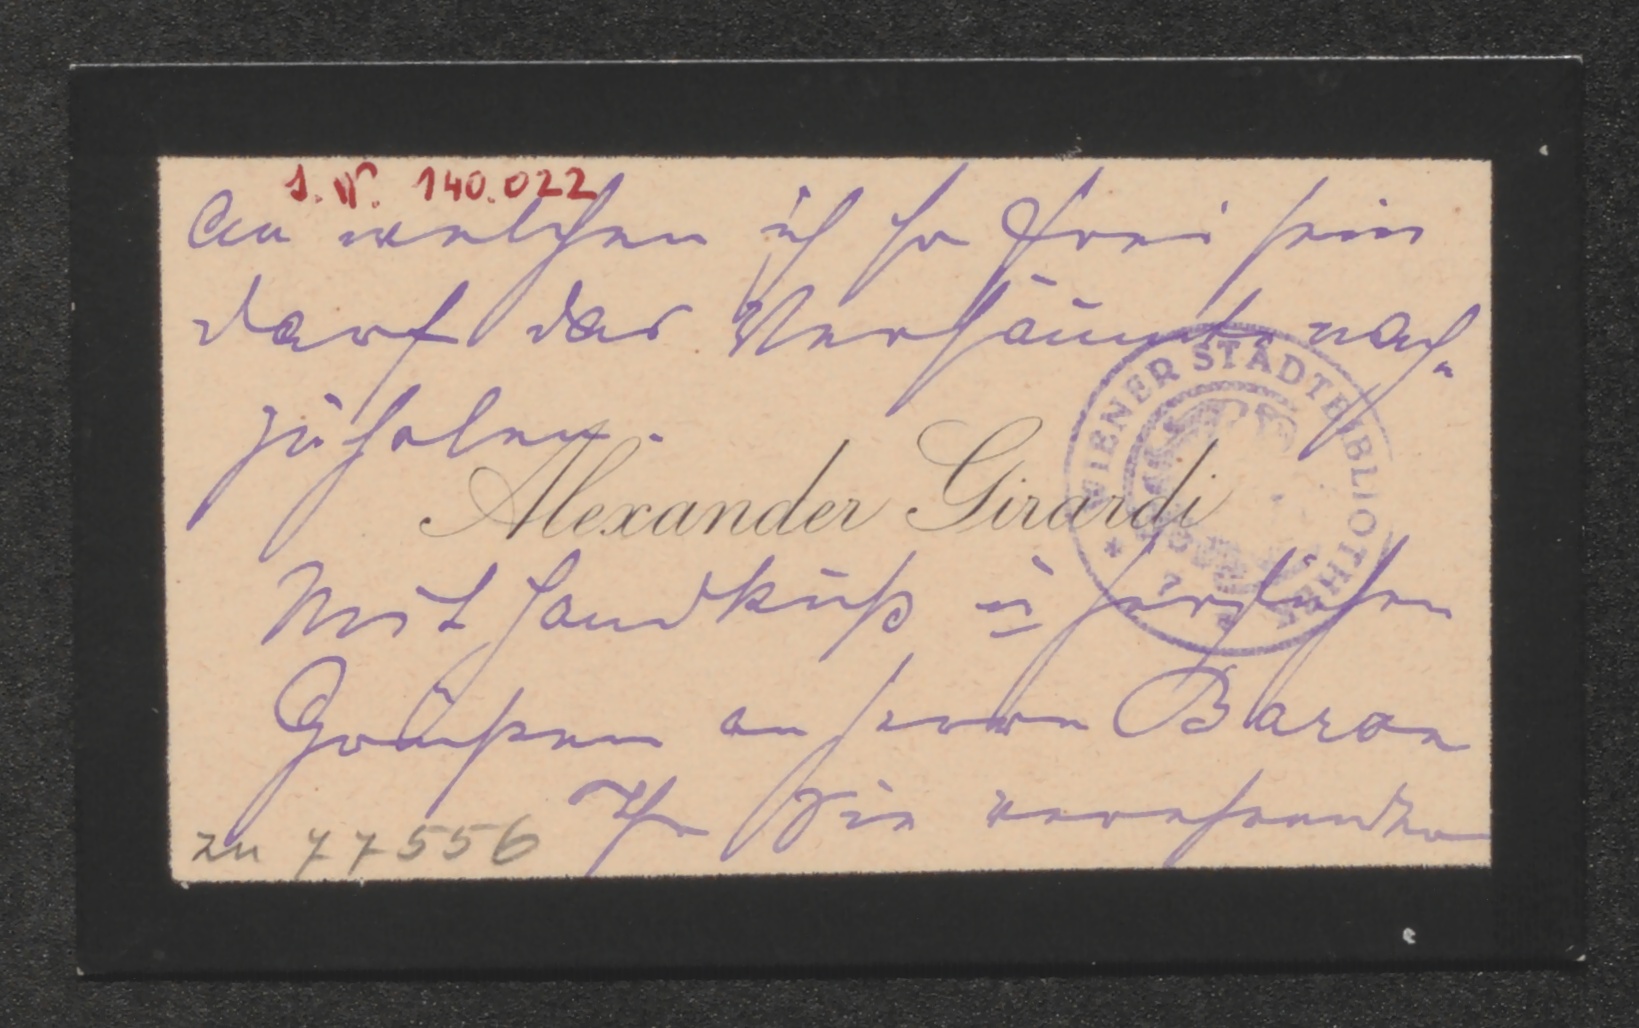 I. N. 140.022
an welchen ich so frei sein
darf das Versäumte nach-
zuholen.
Alexander Girardi
WIENER STADTBIBLIOTHEK
Mit Handkuß u herzlichen
Grüßen an Herrn Baron
Ihr Sie verehrender
zu 77556